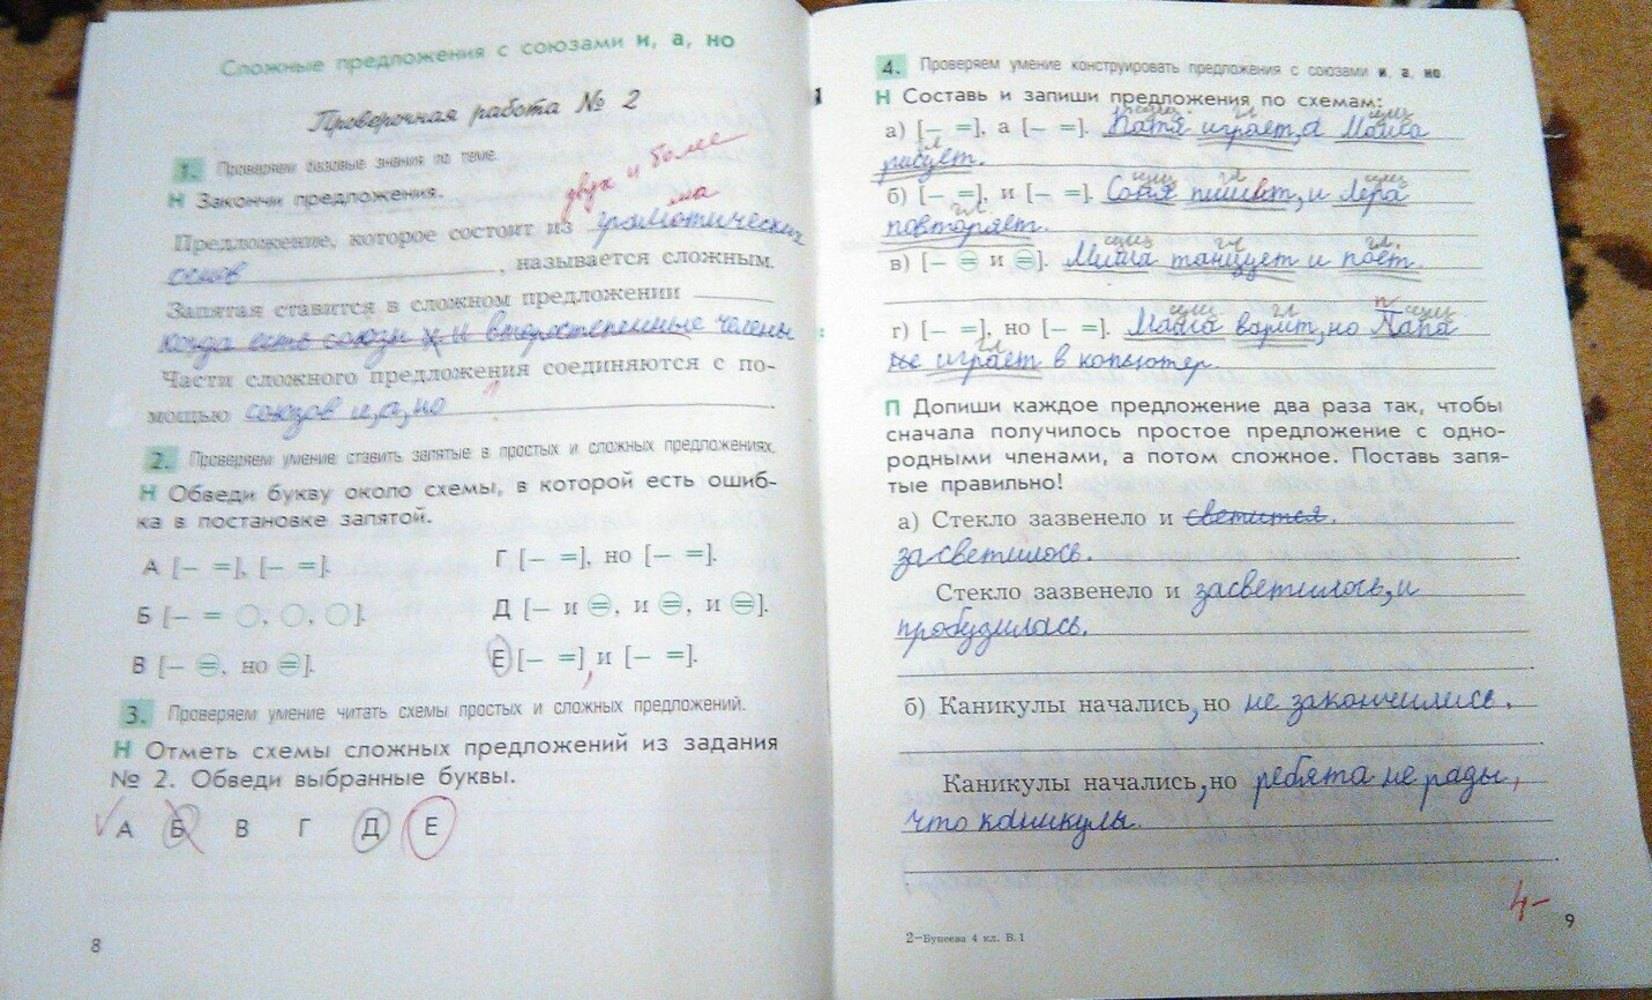 Сложные предложения с союзами и, а, но
Проверочная работа № 2
1. Проверяем базовые знания по теме.
Н Закончи предложения.
двух и более
ма
Предложение, которое состоит из грамотических
основ, называется сложным.
Запятая ставится в сложном предложении
когда есть союзы и и второстепенные члены
Части сложного предложения соединяются с по-
мощью союзов и, а, но.
2. Проверяем умение ставить запятые в простых и сложных предложениях.
Н Обведи букву около схемы, в которой есть ошиб-
ка в постановке запятой.
А [– =], [– =]. Г [– =], но [– =].
Б [– = ○, ○, ○]. Д [– и =, и =, и =].
В [– =, но =]. Е [– =], и [– =].
3. Проверяем умение читать схемы простых и сложных предложений.
Н Отметь схемы сложных предложений из задания
№ 2. Обведи выбранные буквы.
А Б В Г Д Е
8
4. Проверяем умение конструировать предложения с союзами и, а, но.
Н Составь и запиши предложения по схемам:
сущ. гл. сущ.
а) [– =], а [– =]. Катя играет, а Маша
гл.
рисует.
сущ. гл. сущ.
б) [– =], и [– =]. Соня пишет, и Лера
гл.
повторяет.
сущ гл гл.
в) [– = и =]. Миша танцует и поёт.
сущ гл. п сущ
г) [– =], но [– =]. Маша варит, но Папа
гл.
не играет в копьютер.
П Допиши каждое предложение два раза так, чтобы
сначала получилось простое предложение с одно-
родными членами, а потом сложное. Поставь запя-
тые правильно!
а) Стекло зазвенело и светится.
засветилось.
Стекло зазвенело и засветилось, и
пробудилась.
б) Каникулы начались, но не закончились.
Каникулы начались, но ребята не рады,
что каникулы.
4-
2–Бунеева 4 кл. В.1
9